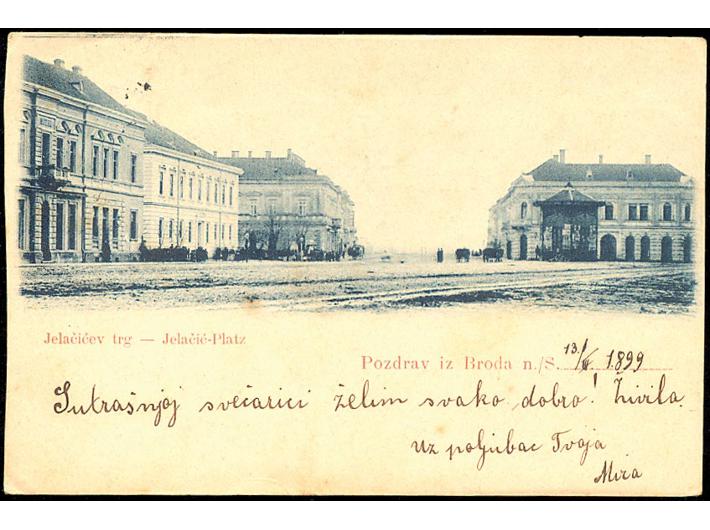 Jelačićev trg — Jelačić-Platz
Pozdrav iz Broda n./S. 13/ 1899
Sutrašnjoj svečarici želim svako dobro! Živila.
Uz poljubac Tvoja
Mira